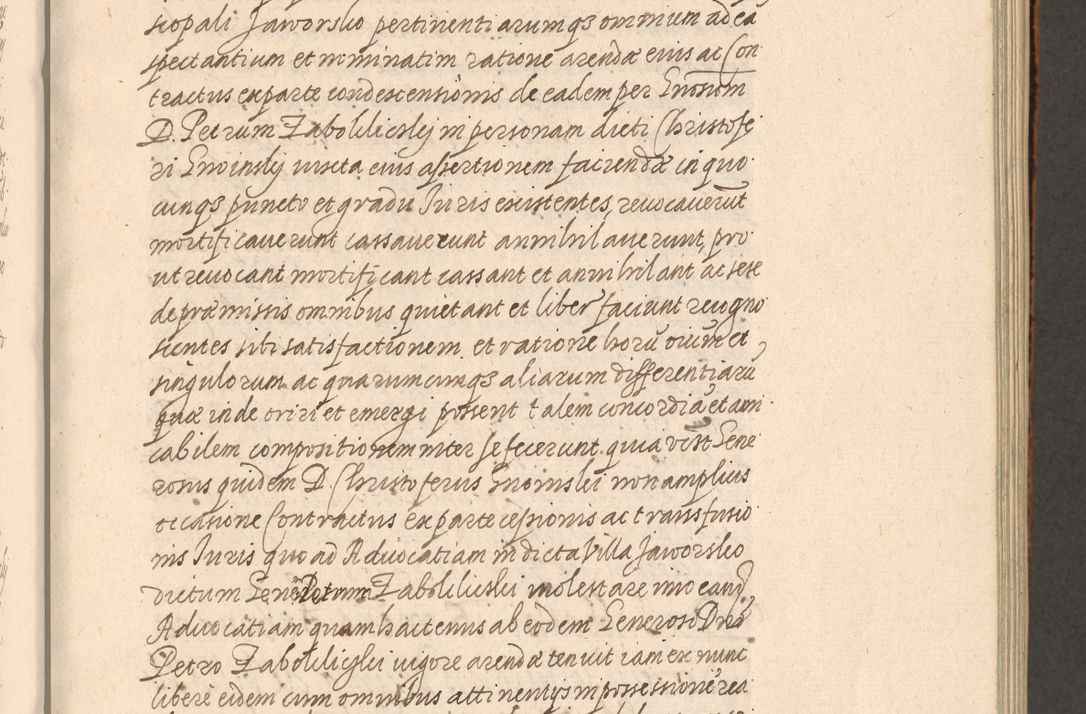 scopali Jaworsko pertinentiarumqs omnium ad ea
spectantium et nominatim ratione arendæ eius ac Con
tractus ex parte condescensionis de eadem per Gnosum
D. Petrum Zaboklicskj in personam dicti Christofe
ri Gnoinskj iuxta eius assertionem faciendæ in quo
cunqs puncto et gradu Juris existentes, reuocauerūt
mortificauerunt cassauerunt annihilauerunt, pro
ut reuocant mortificant cassant et annihilant ac sese
de præmissis omnibus quietant et liber̃ faciunt recogno
scentes sibi satisfactionem et ratione horū oiũm et
singulorum ac quarumcunqs aliarum differentiarū
quæ inde oriri et emergi possent talem concordiã et ami
cabilem compositionem inter se fecerunt quia videlt Gene
rosus quidem D. Christoferus Gnoinskij non amplius
occasione Contractus ex parte cessionis ac transfusio
nis Juris quo ad Aduocatiam in dicta Villa Jaworsko
dictum Gene Petrum Zaboklickskij molestare imo eand
Aduocatiam quam hactenus ab eodem Generoso Dno
Petro Zaboklicskj uigore arendæ tenuit iam ex nunc
libere eidem cum omnibus attinentijs in possessionē rea